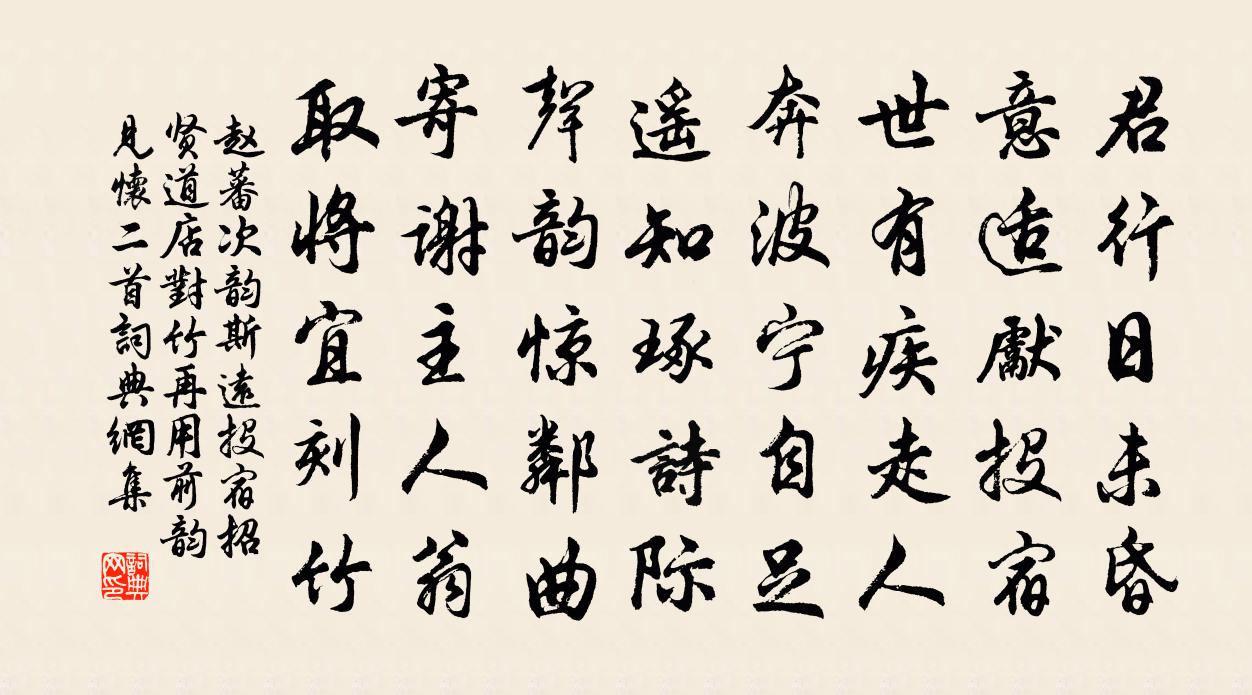 君行日未昏
意适獻投宿
世有疾走人
奔波宁自足
遥知琢詩际
聲韵惊鄰曲
寄谢主人翁
取將宜刻竹
赵蕃次韵斯遠投宿招
贤道店對竹再用前韵
見懷二首詞典網集
詞典网印